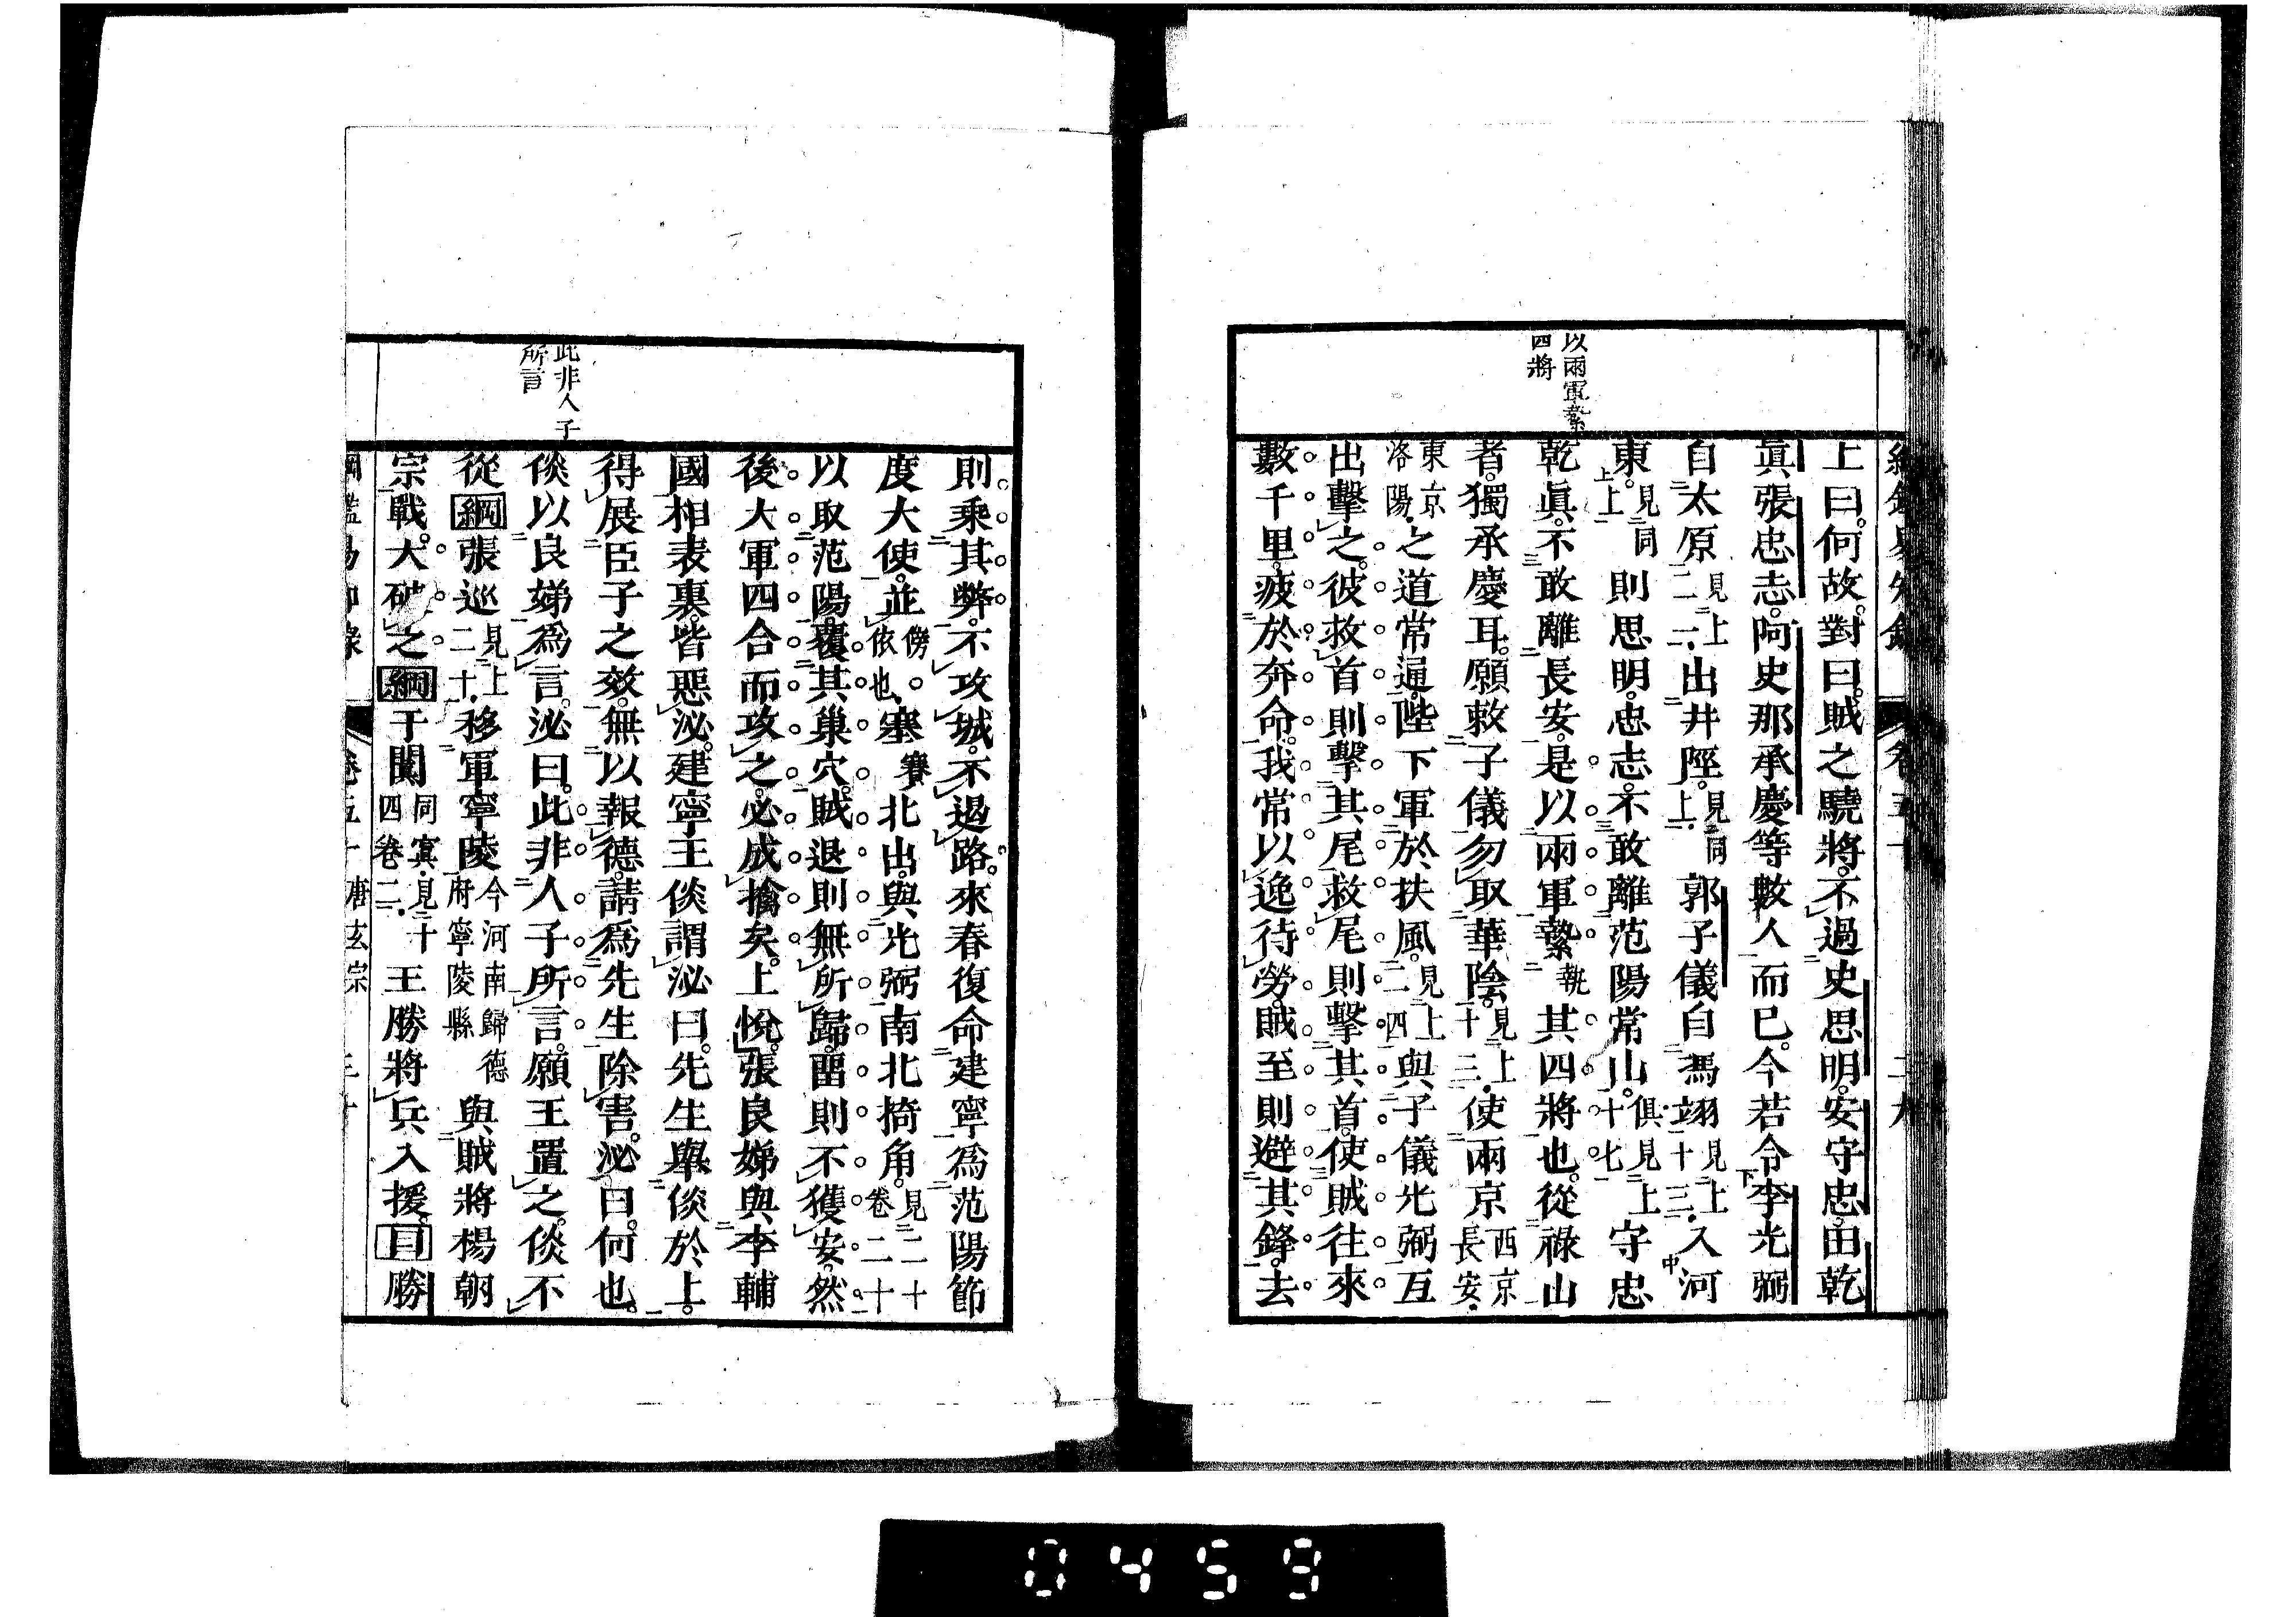 以兩軍縶
四將
上曰何故對曰賊之驍將不過史思明安守忠田乾
眞張忠志阿史那承慶等數人而已今若令李光弼
自太原見上二一出井陘見同上郭子儀自馮翊見上十三入河
東見同上則思明忠志不敢離范陽常山俱見上十七守忠
乾眞不敢離長安是以兩軍縶執其四將也從祿山
者獨承慶耳願敕子儀勿取華陰見上十三使兩京西京長安
東京洛陽之道常通陛下軍於扶風見上二四與子儀光弼互
出擊之彼救首則擊其尾救尾則擊其首使賊往來
數千里疲於奔命我常以逸待勞賊至則避其鋒去
此非人子
所言
則乘其弊不攻城不遏路來春復命建寧爲范陽節
度大使並傍依也塞賽北出與光弼南北掎角見二十卷二十
以取范陽覆其巢穴賊退則無所歸留則不獲安然
後大軍四合而攻之必成擒矣上悅張良娣與李輔
國相表裏皆惡泌建寧王倓謂泌曰先生舉倓於上
得展臣子之效無以報德請爲先生除害泌曰何也
倓以良娣爲言泌曰此非人子所言願王置之倓不
從綱張巡見上二十移軍寧陵今河南歸德府寧陵縣與賊將楊朝
宗戰大破之綱于闐同窴見十四卷二王勝將兵入援目勝
綱鑑易知錄 卷五十 唐玄宗 三十